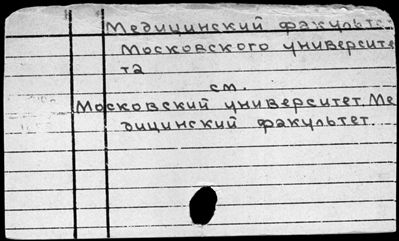 Медицинский факультет
Московского университе
та
см.
Московский университет. Ме
дицинский факультет.